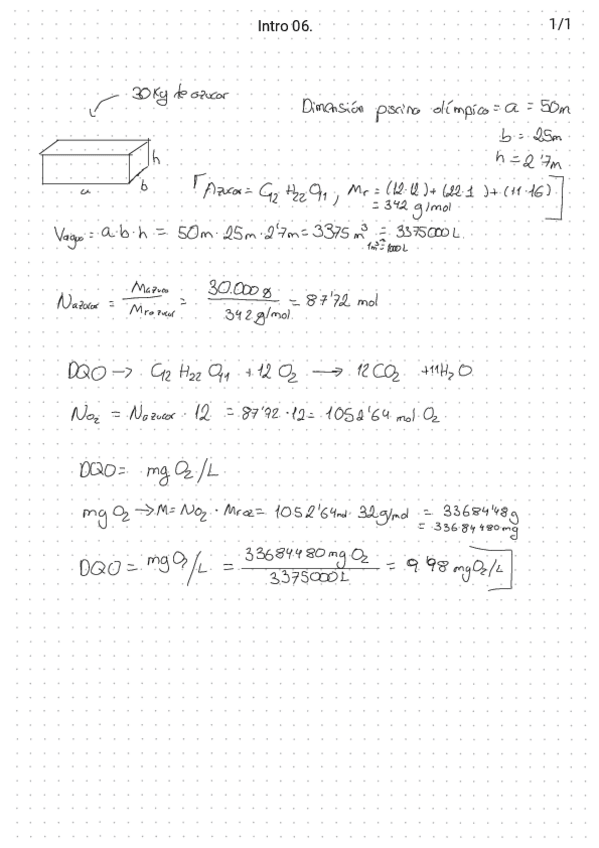 Intro 06.
1/1
30Kg de azucar
Dimensión piscina olímpica = a = 50m
b = 25m
h = 2'7m
h
b
a
Azucar = C12 H22 O11, Mr = (12·12) + (22·1) + (11·16)
= 342 g/mol
Vagua = a·b·h = 50m·25m·2'7m = 3375 m³ = 3375000 L
1m³ = 1000L
Nazucar = Mazucar / Mrazucar = 30.000 g / 342 g/mol = 87'72 mol
DQO → C12 H22 O11 + 12 O2 → 12 CO2 + 11 H2O
NO2 = Nazucar · 12 = 87'72 · 12 = 1052'64 mol O2
DQO = mg O2/L
mg O2 → M = NO2 · MrO2 = 1052'64 mol · 32 g/mol = 33684'48g
= 33684480 mg
DQO = mg O2/L = 33684480 mg O2 / 3375000 L = 9'98 mg O2/L